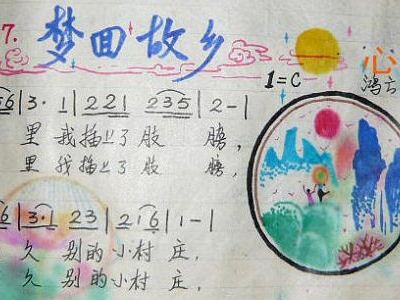 7. 梦回故乡 心
1=C 鸿云
56|3· 1|2 2 2 1 2 3 5|2 - |
里 我插上了 肢 膀,
里 我插上了 肢 膀,
6|3·1 2 3|2 1 6|1 - |
久 别的小村 庄,
久 别的小村 庄,